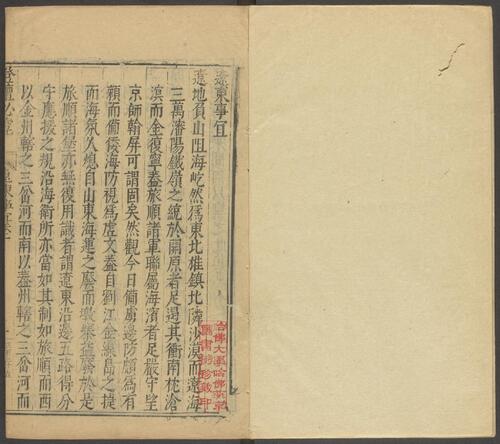 遼東事宜
遼地負山阻海屹然為東北雄鎮北隣沙漠而遼海
三萬瀋陽鐵嶺之統於開原者足遏其衝南枕滄
溟而金復寧葢旅順諸軍聯屬海濱者足嚴守望
京師翰屏可謂固矣然觀今日備虜邊防頗為有
賴而備倭海防視為虛文葢自劉江金線島之捷
而海氛久熄自山東海運之廢而環
旅順諸堡亦無復用識者謂遼東沿邊五路得分
守應援之規沿海衛所亦當如其制如旅順而西
以金州轄之三岔河而南以葢州轄之三岔河而
哈佛大學哈佛燕京
圖書館珍藏印